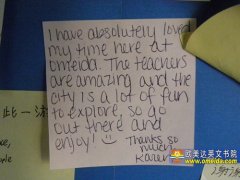 I have absolutely loved
my time here at
omeida. The teachers
are amazing and the
city is a lot of fun
to explore, so go
out there and
enjoy! Thanks so
much
Karen
此一游
欧美达英文书院
www.omeida.com